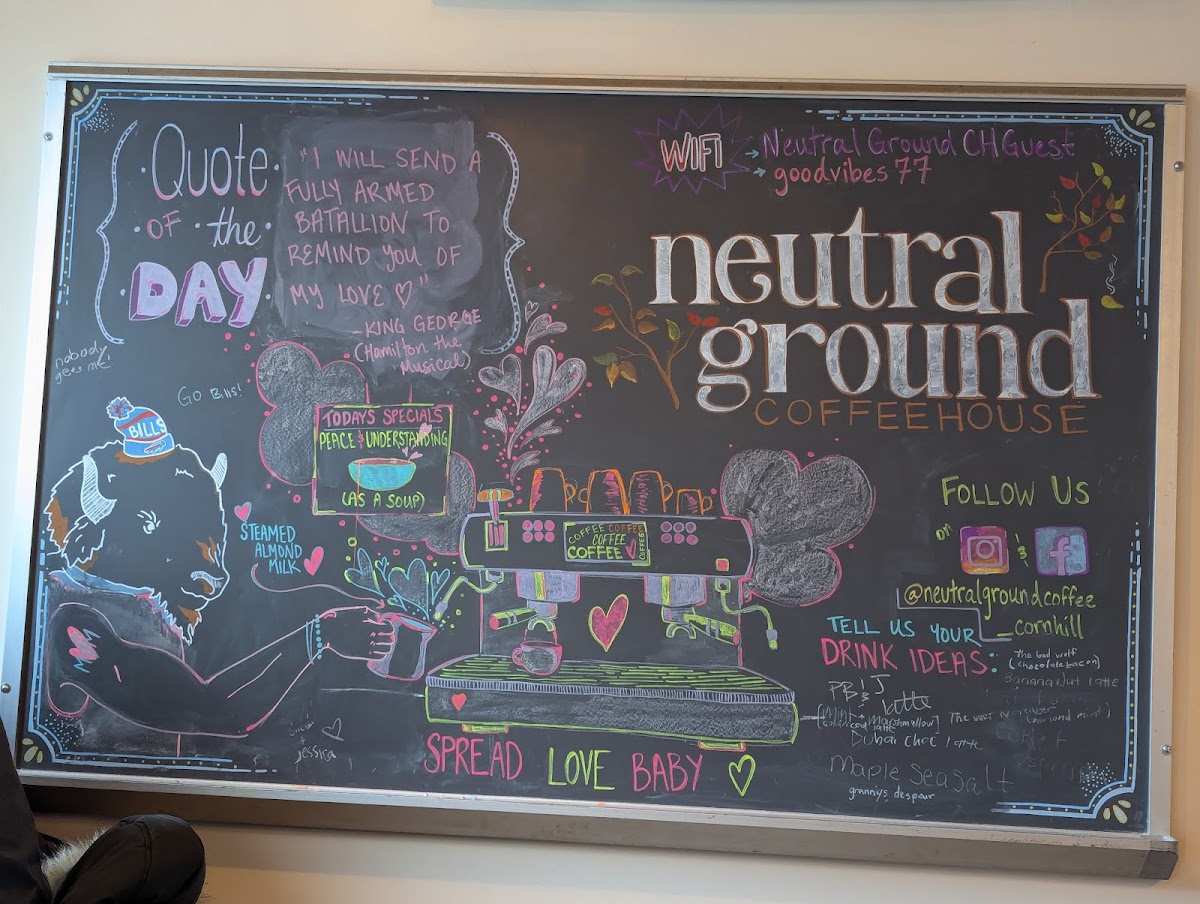 Quote
OF the
DAY
"I WILL SEND A
FULLY ARMED
BATALLION TO
REMIND YOU OF
MY LOVE ♡"
-KING GEORGE
(Hamilton the
Musical)
WIFI
→ Neutral Ground CH Guest
→ goodvibes77
neutral
ground
COFFEEHOUSE
nobody
gets me
Go Bills!
BILLS
TODAYS SPECIALS
PEACE & UNDERSTANDING
(AS A SOUP)
STEAMED
ALMOND
MILK
COFFEE COFFEE
COFFEE
COFFEE
COFFEE
FOLLOW US
on
&
f
@neutralgroundcoffee
_cornhill
TELL US YOUR
DRINK IDEAS:
the bad wolf
(chocolate bacon)
Banana Nut Latte
PB & J
latte
marshmallow]
Dubai Choc latte
Maple Sea Salt
grannys despair
+ jessica
SPREAD LOVE BABY ♡